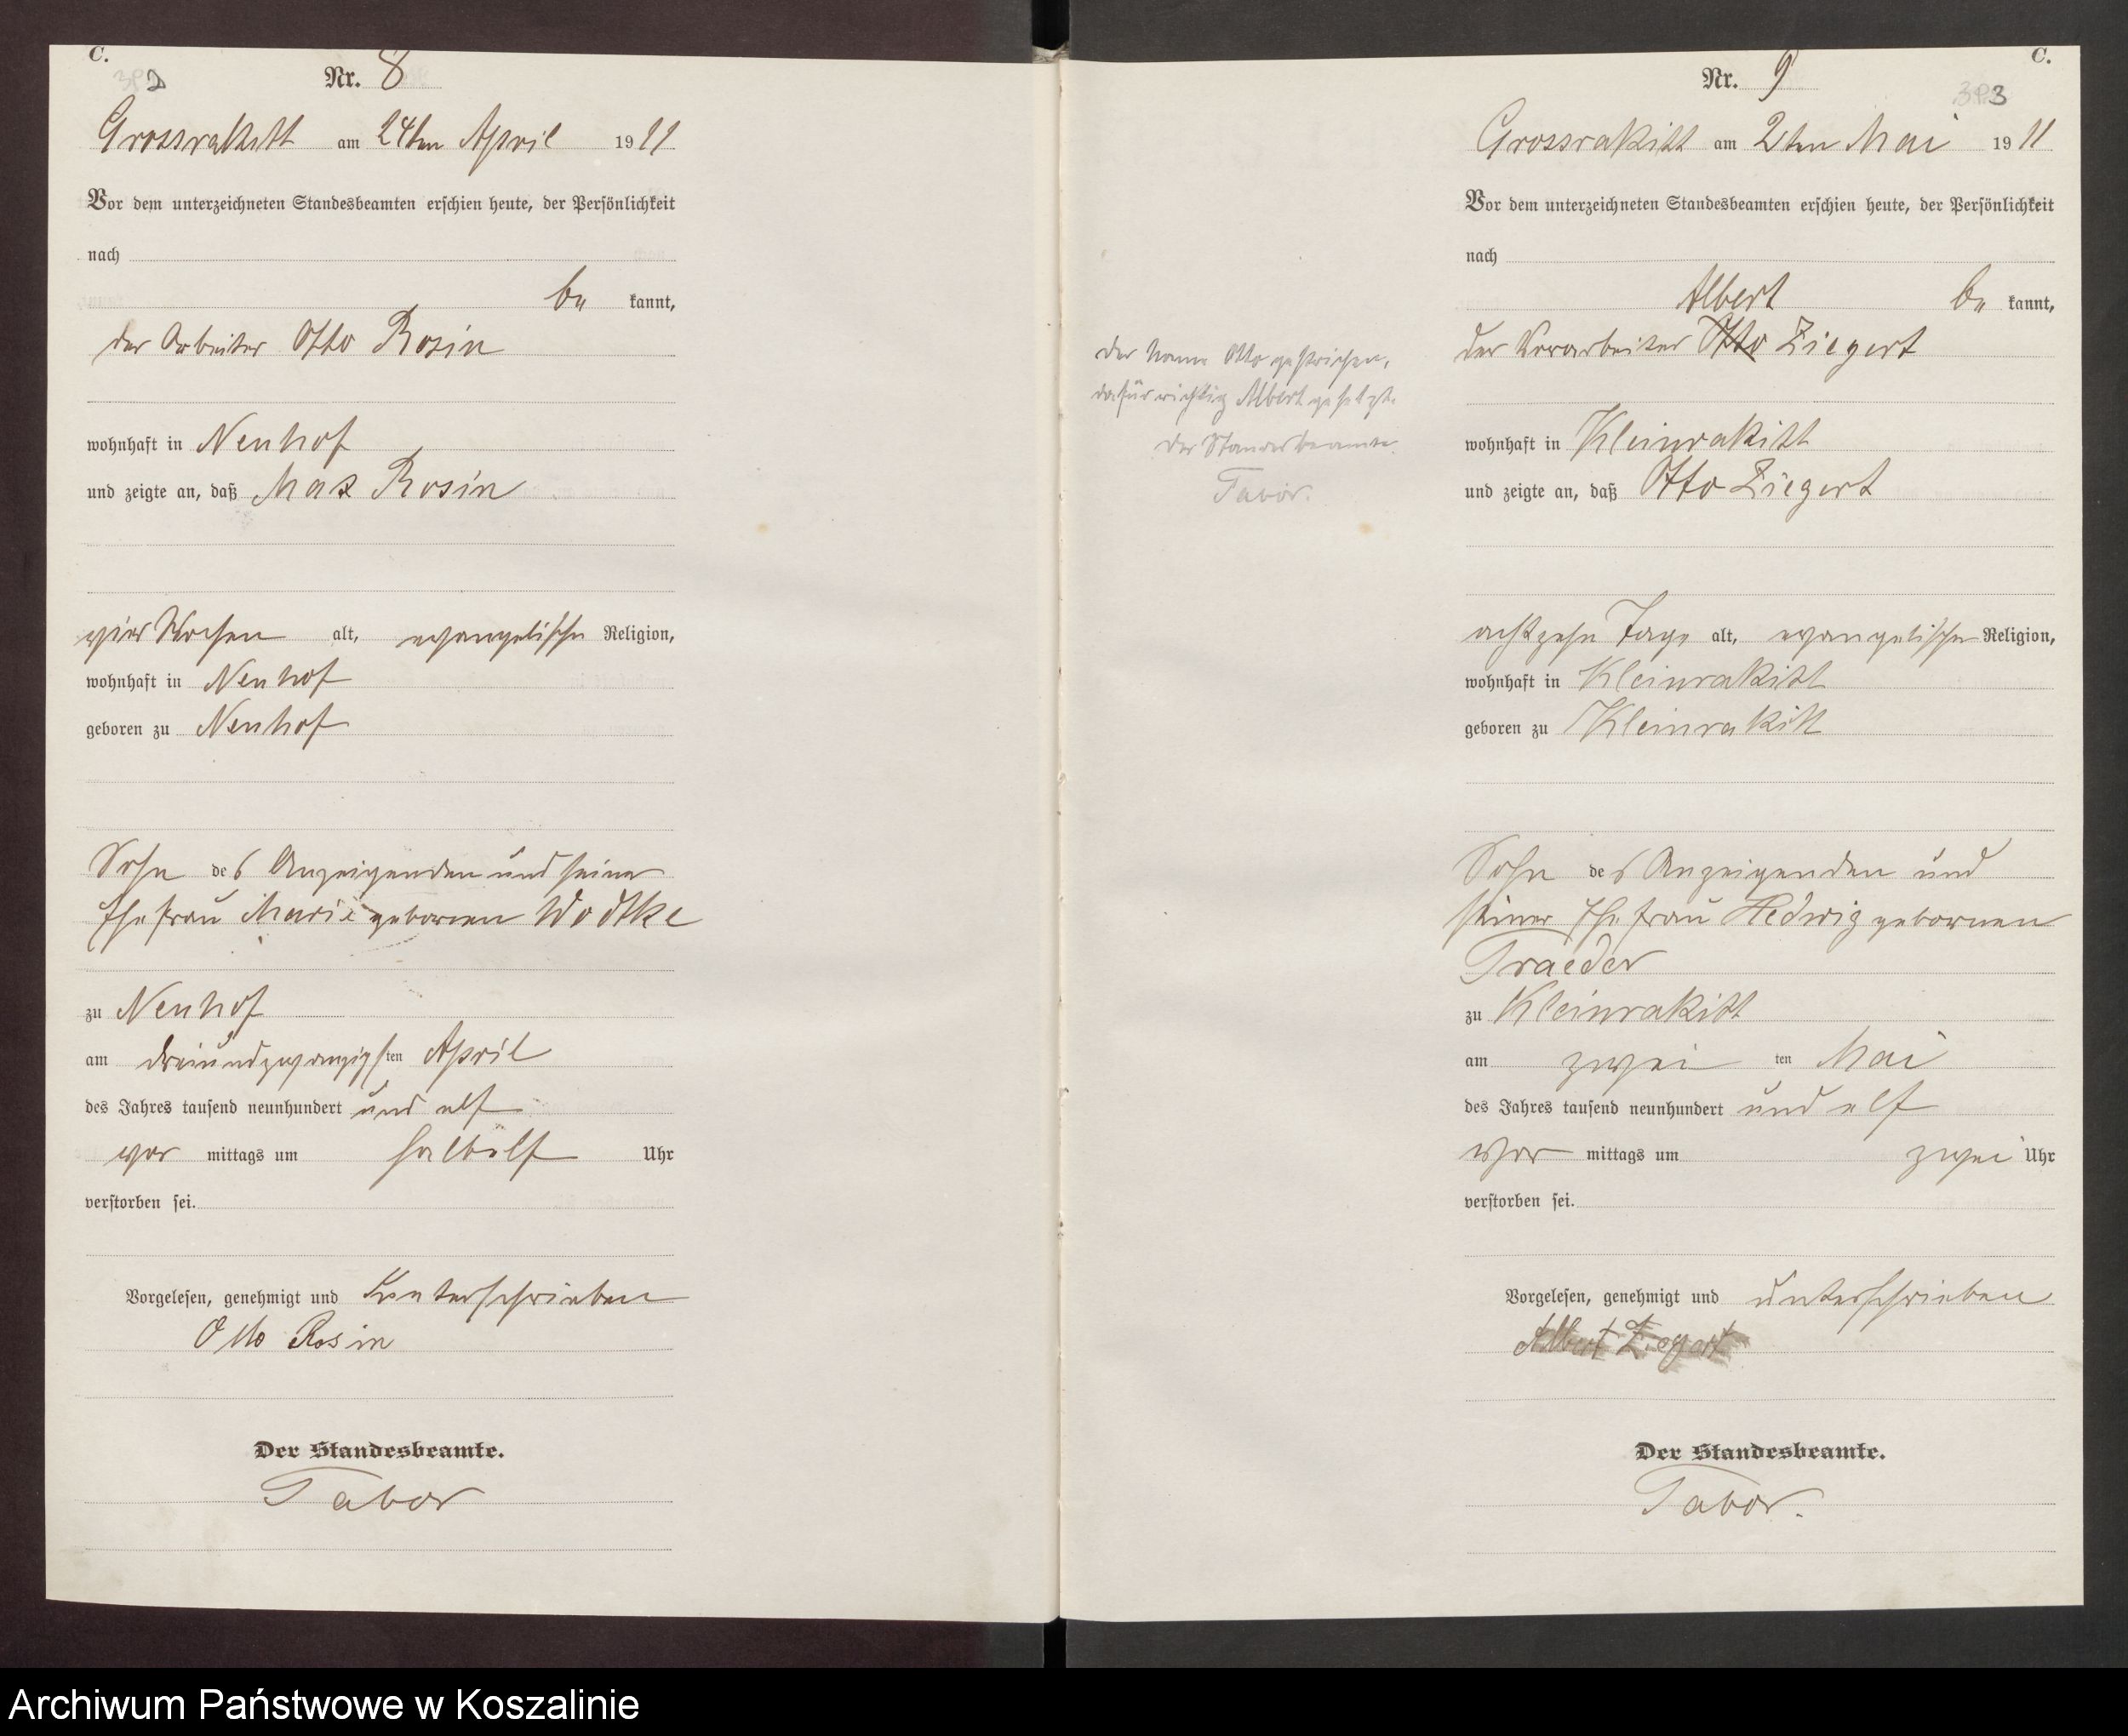 C.
Nr. 8
Grossrakitt am 24ten April 1911
Vor dem unterzeichneten Standesbeamten erschien heute, der Persönlichkeit
nach
be kannt,
der Arbeiter Otto Rosin
wohnhaft in Neuhof
und zeigte an, daß Max Rosin
vier Wochen alt, evangelischer Religion,
wohnhaft in Neuhof
geboren zu Neuhof
Sohn des Anzeigenden und seiner
Ehefrau Marie gebornen Wodtke
zu Neuhof
am dreiundzwanzigsten April
des Jahres tausend neunhundert und elf
vor mittags um halb elf Uhr
verstorben sei.
Vorgelesen, genehmigt und unterschrieben
Otto Rosin
Der Standesbeamte.
Tabor
C.
Nr. 9
Grossrakitt am 2ten Mai 1911
Vor dem unterzeichneten Standesbeamten erschien heute, der Persönlichkeit
nach
Albert be kannt,
der Vorarbeiter Otto Ziegert
der Name Otto gestrichen,
dafür richtig Albert gesetzt.
Der Standesbeamte.
Tabor.
wohnhaft in Kleinrakitt
und zeigte an, daß Otto Ziegert
achtzehn Tage alt, evangelischer Religion,
wohnhaft in Kleinrakitt
geboren zu Kleinrakitt
Sohn des Anzeigenden und
seiner Ehefrau Hedwig gebornen
Traeder
zu Kleinrakitt
am zwei ten Mai
des Jahres tausend neunhundert und elf
vor mittags um zwei Uhr
verstorben sei.
Vorgelesen, genehmigt und unterschrieben
Albert Ziegert
Der Standesbeamte.
Tabor.
Archiwum Państwowe w Koszalinie